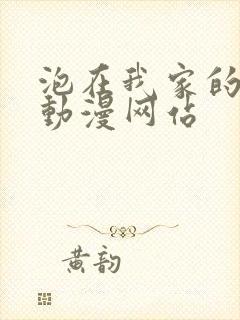 泡在我家的
動漫网佔
黄韵